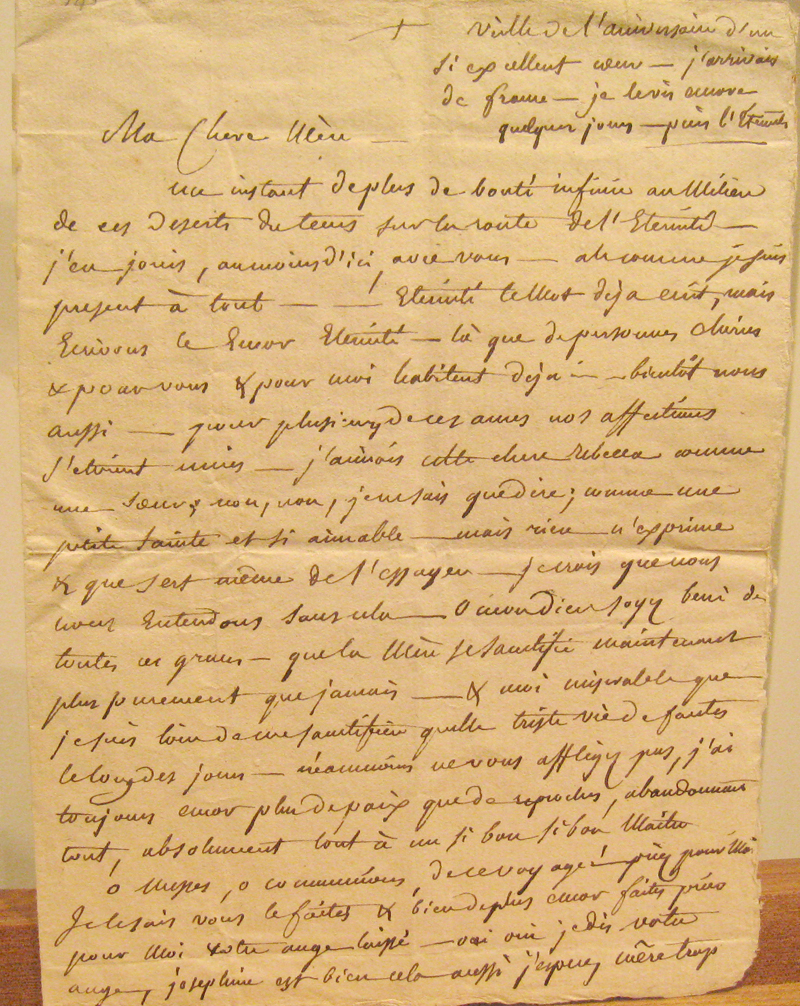 + veille de l'aniversaire d'un
si excellent cœur — j'arrivais
de france — je le vis encore
quelques jours — puis l'Eternité
Ma Chere Mère —
un instant de plus de bonté infinie au Milieu
de ces Deserts du tems sur la route de l'Eternité —
j'en jouis, au moins d'ici, avec vous — ah comme je suis
present à tout — — Eternité le Mot deja ecrit, mais
Ecrivons le Encor Eternité — là que de personnes chéries
& pour vous & pour moi habitent deja — bientôt nous
aussi — pour plusieurs de ces ames nos affections
s'etoient unies — j'aimois cette chere rebecca comme
une Sœur; non, non, je ne sais que dire; comme une
petite Sainte et si aimable — mais rien n'exprime
& que sert même de l'essayer — je crois que nous
nous Entendons sans cela — O mon dieu soyez beni de
toutes ces graces — que la Mère se sanctifie maintenant
plus purement que jamais — & moi miserable que
je suis loin de me sanctifier quelle triste vie de fautes
le long des jours — néanmoins ne vous affligez pas, j'ai
toujours encor plus de paix que de reproches, abandonnant
tout, absolument tout à un si bon si bon Maitre
ô Messes, o communions de ce voyage! priez pour Moi
Je le sais vous le faites & bien de plus encor faites prier
pour Moi votre ange laissé — oui oui je dis votre
ange, josephine est bien cela aussi j'espere, mère trop